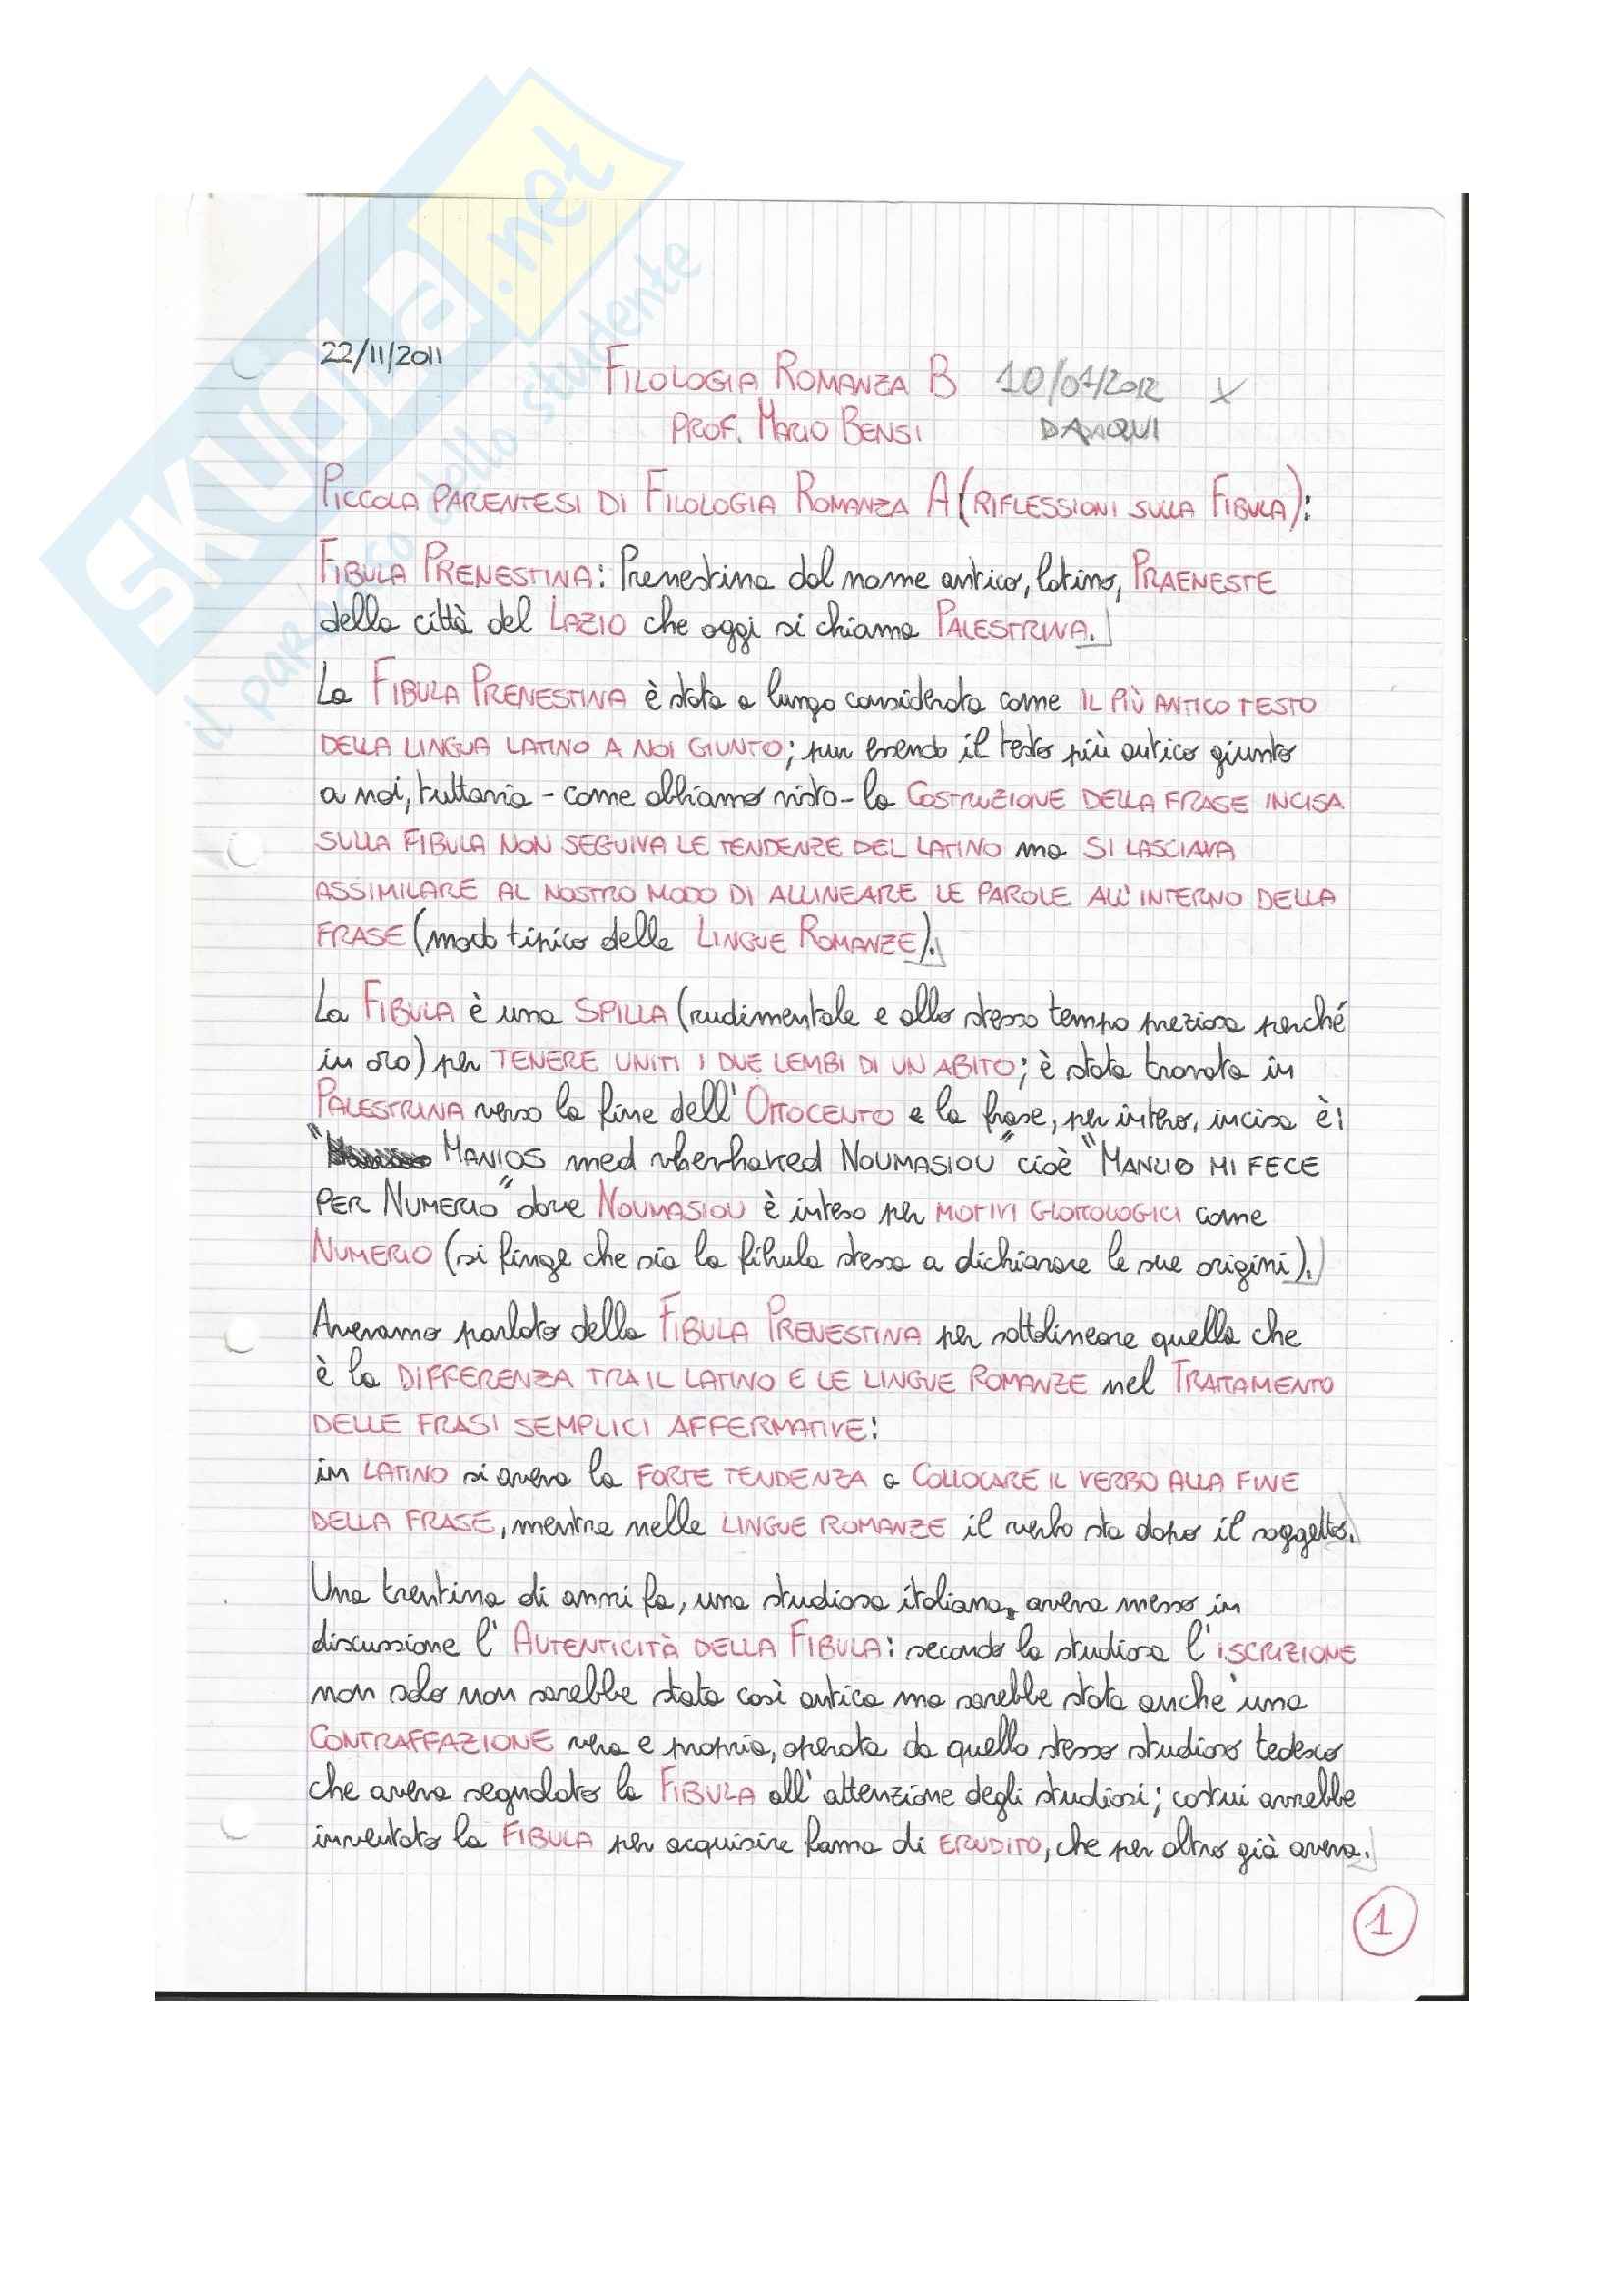 SKUOLA.net
il paradiso dello studente
22/11/2011
FILOLOGIA ROMANZA B 10/01/2012 X
PROF. MARIO BENSI DA QUI
PICCOLA PARENTESI DI FILOLOGIA ROMANZA A (RIFLESSIONI SULLA FIBULA):
FIBULA PRENESTINA: Prenestina dal nome antico, latino, PRAENESTE
della città del LAZIO che oggi si chiama PALESTRINA.
La FIBULA PRENESTINA è stata a lungo considerata come IL PIÙ ANTICO TESTO
DELLA LINGUA LATINO A NOI GIUNTO; pur essendo il testo più antico giunto
a noi, tuttavia - come abbiamo visto - la COSTRUZIONE DELLA FRASE INCISA
SULLA FIBULA NON SEGUIVA LE TENDENZE DEL LATINO ma SI LASCIAVA
ASSIMILARE AL NOSTRO MODO DI ALLINEARE LE PAROLE ALL'INTERNO DELLA
FRASE (modo tipico delle LINGUE ROMANZE).
La FIBULA è una SPILLA (rudimentale e allo stesso tempo preziosa perché
in oro) per TENERE UNITI I DUE LEMBI DI UN ABITO; è stata trovata in
PALESTRINA verso la fine dell'OTTOCENTO e la frase, per intero, incisa è:
" MANIOS med vhevhaked NOUMASIOU" cioè "MANLIO MI FECE
PER NUMERIO" dove NOUMASIOU è inteso per MOTIVI GLOTTOLOGICI come
NUMERIO (si finge che sia la fibula stessa a dichiarare le sue origini).
Avevamo parlato della FIBULA PRENESTINA per sottolineare quella che
è la DIFFERENZA TRA IL LATINO E LE LINGUE ROMANZE nel TRATTAMENTO
DELLE FRASI SEMPLICI AFFERMATIVE:
in LATINO si aveva la FORTE TENDENZA a COLLOCARE IL VERBO ALLA FINE
DELLA FRASE, mentre nelle LINGUE ROMANZE il verbo sta dopo il soggetto.
Una trentina di anni fa, una studiosa italiana, aveva messo in
discussione l'AUTENTICITÀ DELLA FIBULA: secondo la studiosa l'ISCRIZIONE
non solo non sarebbe stata così antica ma sarebbe stata anche una
CONTRAFFAZIONE vera e propria, operata da quello stesso studioso tedesco
che aveva segnalato la FIBULA all'attenzione degli studiosi; costui avrebbe
inventato la FIBULA per acquisire fama di ERUDITO, che per altro già aveva.
1